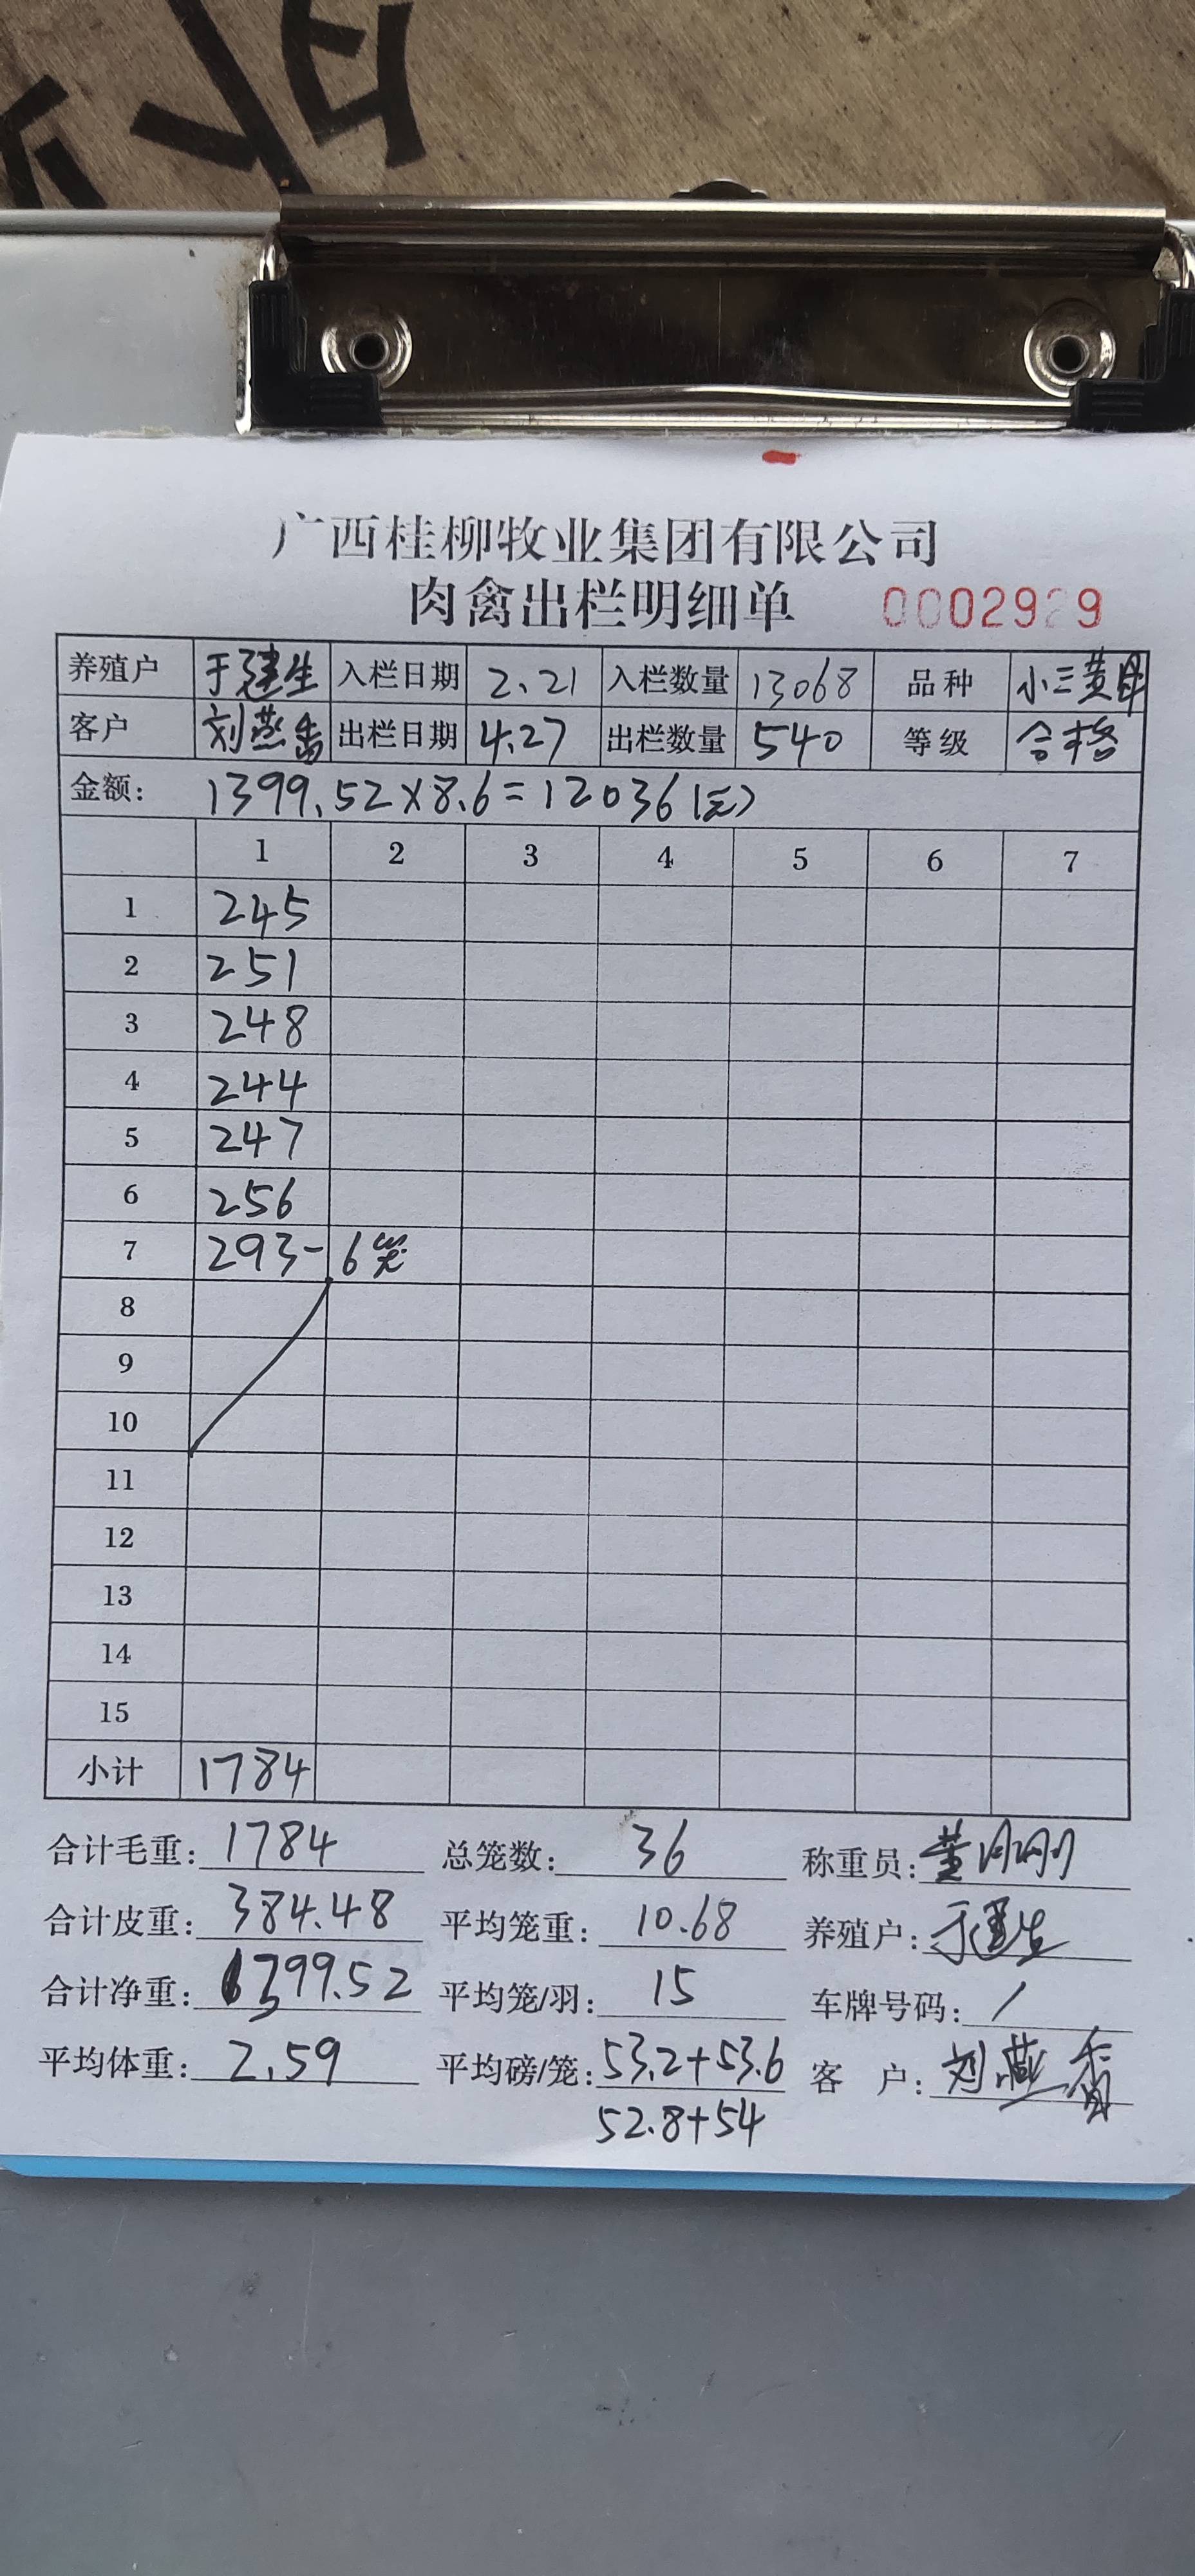 广西桂柳牧业集团有限公司
肉禽出栏明细单 0002929
养殖户 于建生 入栏日期 2.21 入栏数量 13068 品种 小三黄母
客户 刘燕香 出栏日期 4.27 出栏数量 540 等级 合格
金额: 1399.52×8.6=12036(元)
1 2 3 4 5 6 7
1 245
2 251
3 248
4 244
5 247
6 256
7 293- 6笼
8
9
10
11
12
13
14
15
小计 1784
合计毛重: 1784 总笼数: 36 称重员: 黄刚刚
合计皮重: 384.48 平均笼重: 10.68 养殖户: 于建生
合计净重: 1399.52 平均笼/羽: 15 车牌号码: /
平均体重: 2.59 平均磅/笼: 53.2+53.6 客 户: 刘燕香
52.8+54